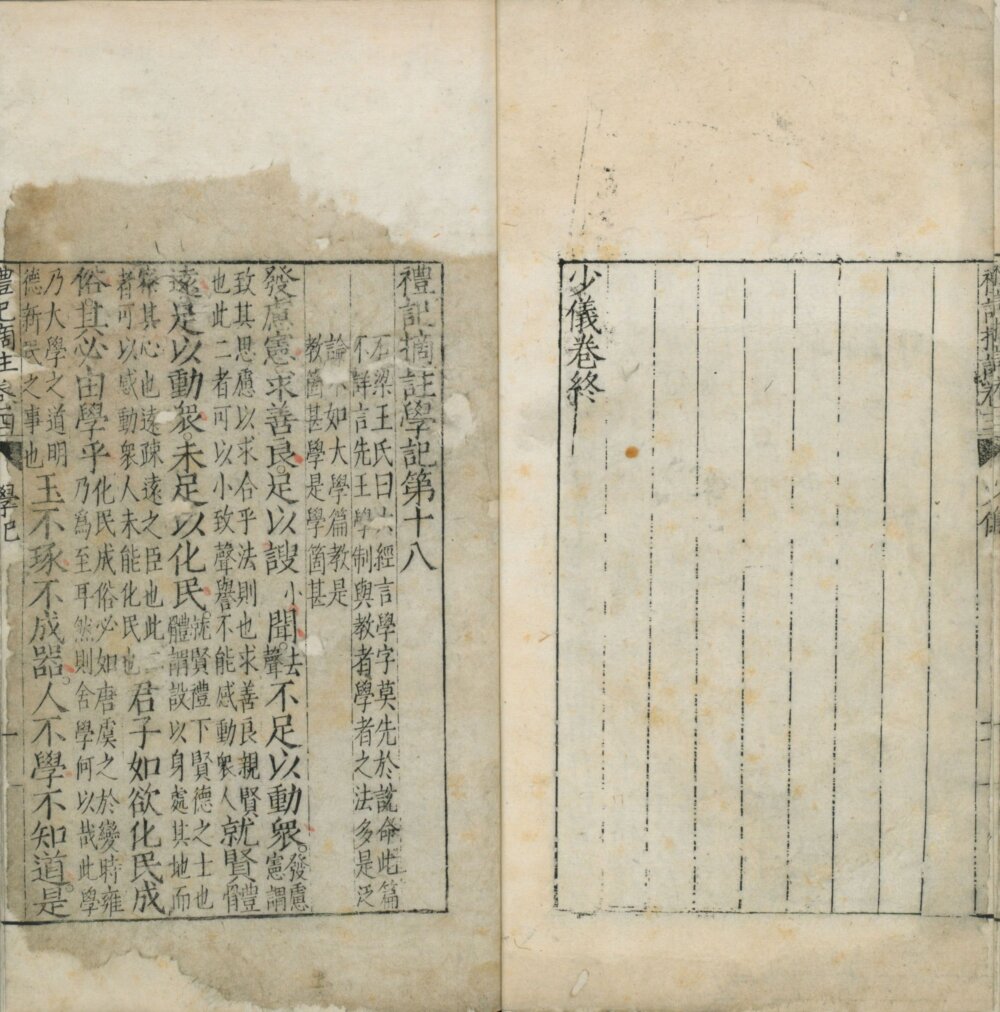 禮記摘註卷三 少儀
少儀卷終
禮記摘註學記第十八
石梁王氏曰六經言學字莫先於說命此篇
不詳言先王學制與教者學者之法多是泛
論不如大學篇教是
教箇甚學是學箇甚
發慮憲求善良。足以謏小聞去聲不足以動衆。發慮憲謂
致其思慮以求合乎法則也求善良親賢
也此二者可以小致聲譽不能感動衆人就賢體
遠足以動衆。未足以化民。就賢禮下賢德之士也體謂設以身處其地而
察其心也遠疎遠之臣也此二
者可以感動衆人未能化民也君子如欲化民成
俗。其必由學乎化民成俗必如唐虞之於變時雍乃爲至耳然則舍學何以哉此學
乃大學之道明
德新民之事也玉不琢不成器。人不學不知道。是
禮記摘註卷四 學記 一